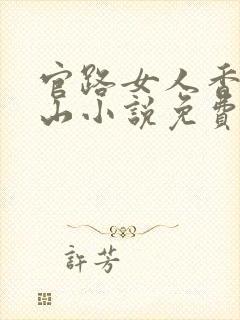 官路女人香
山小說免費
許芳